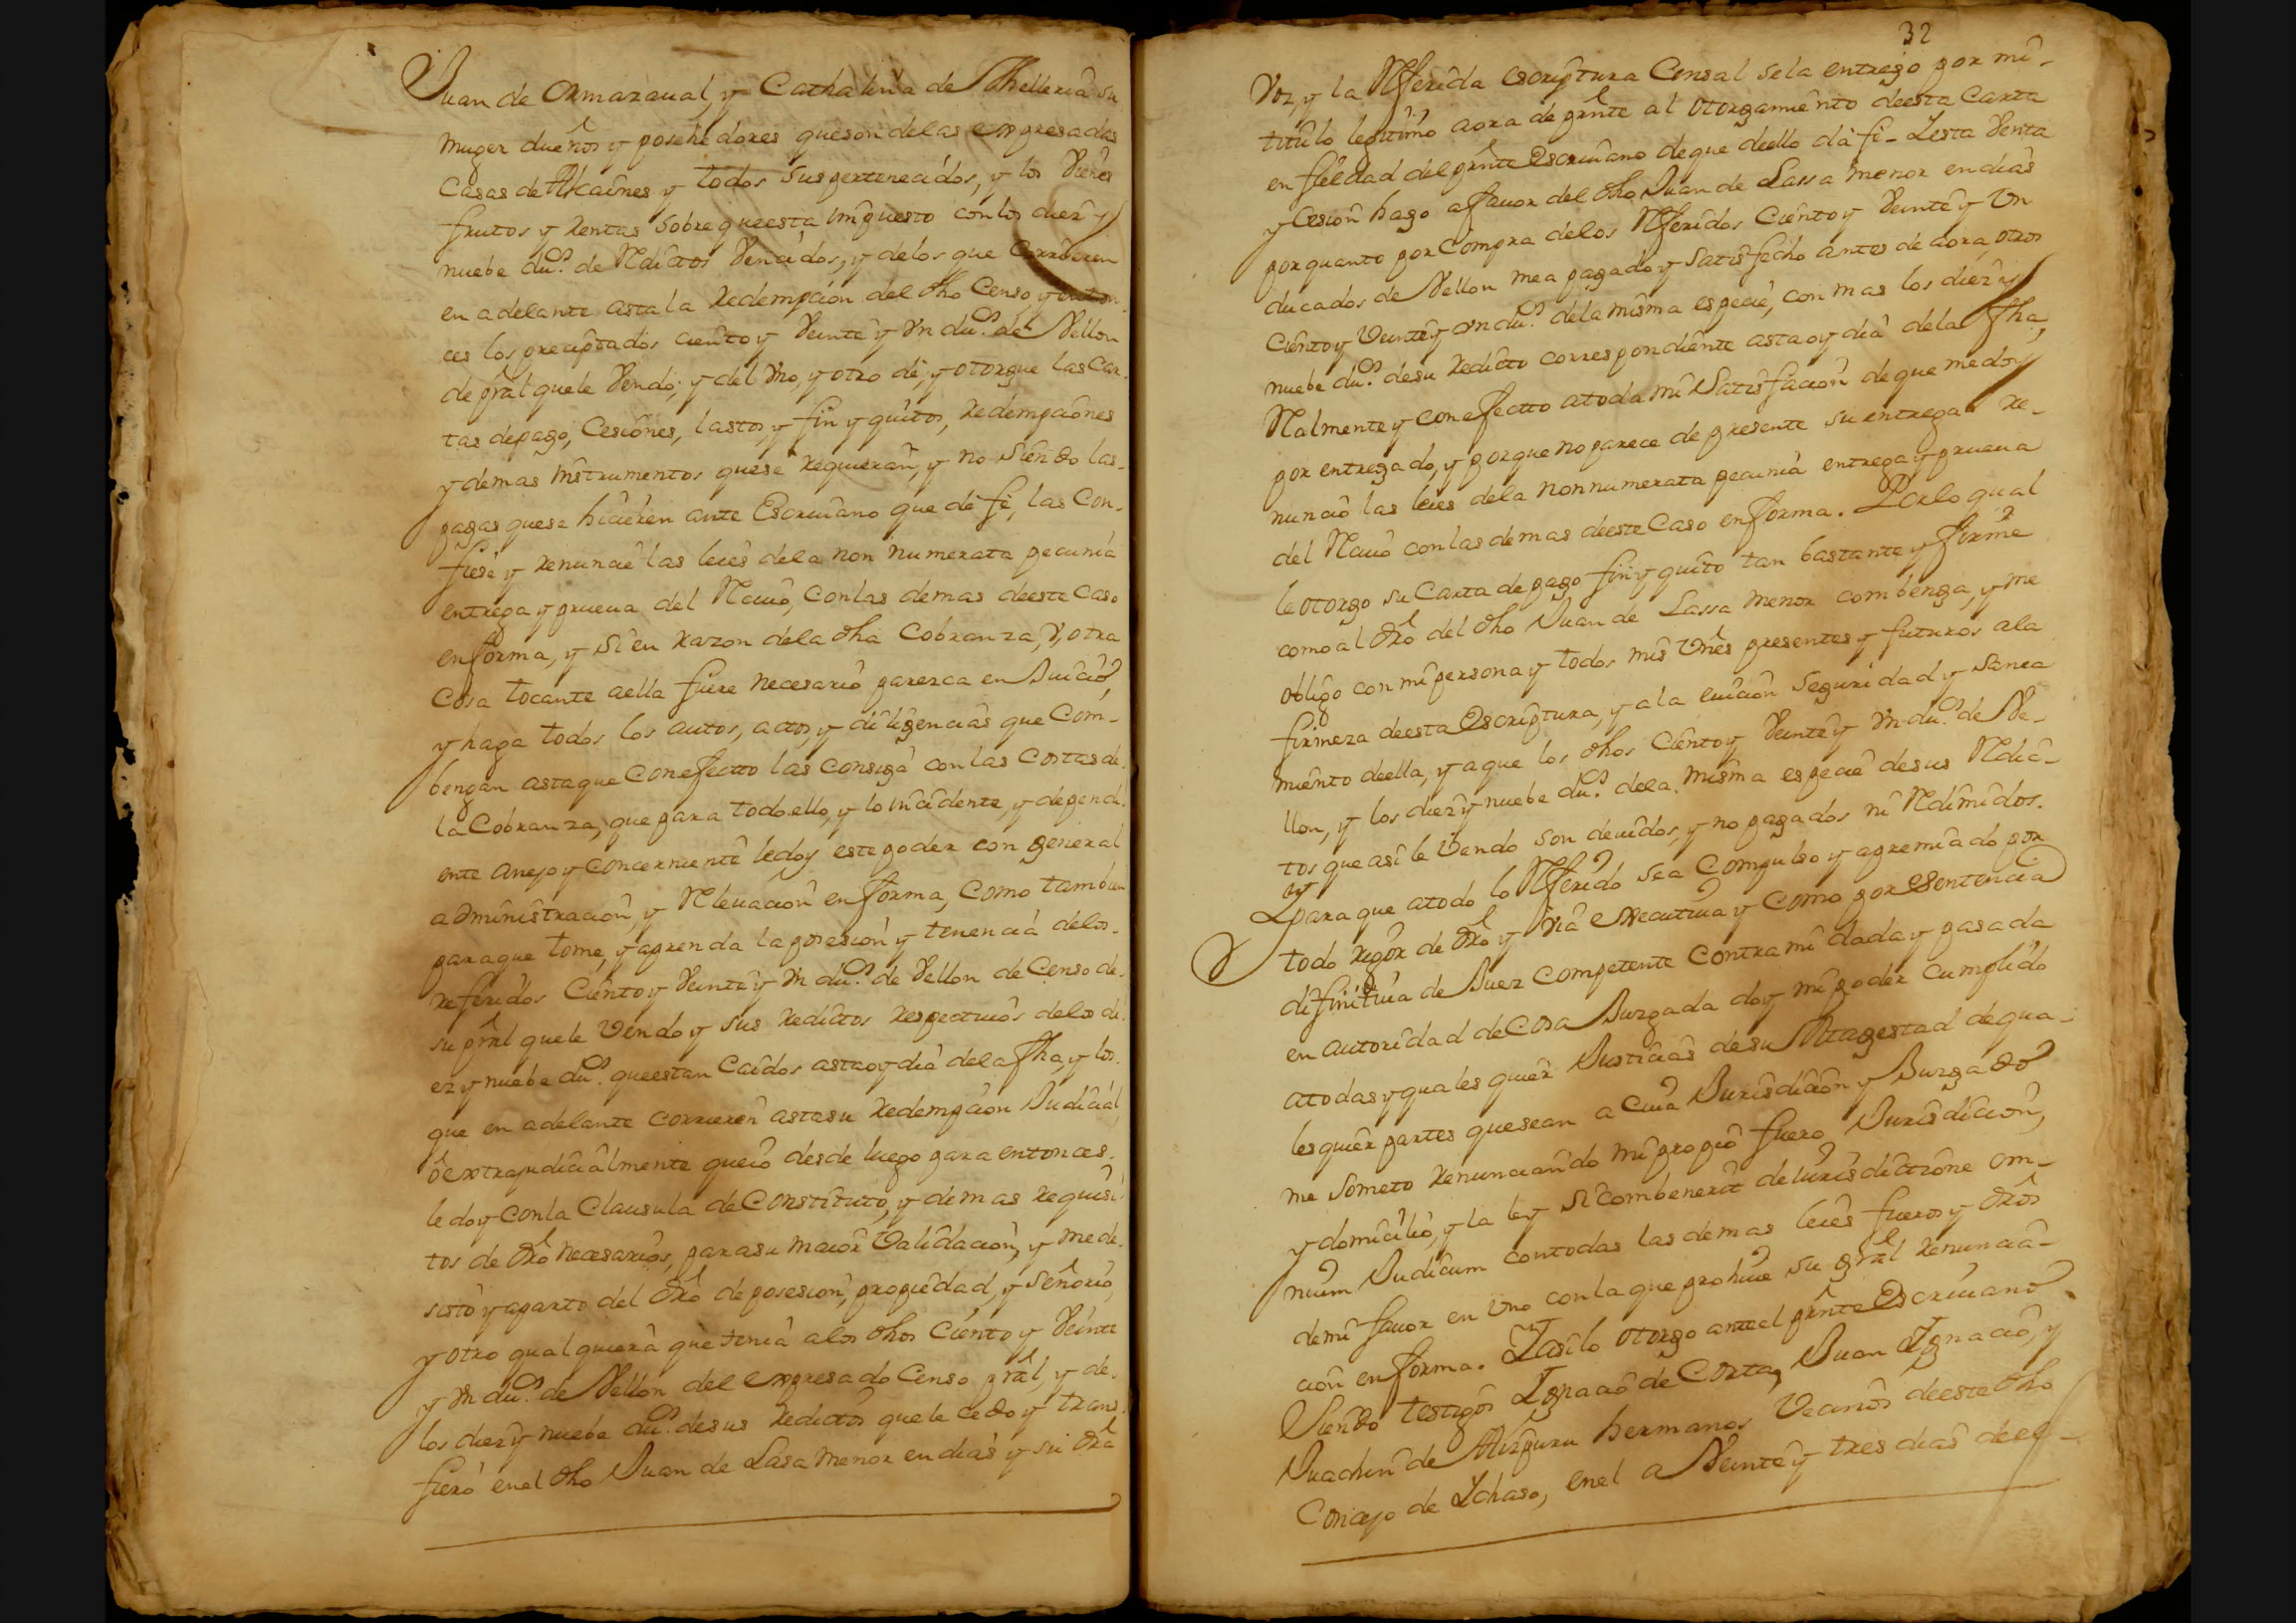 Juan de Ormazaual, y Cathalina de Thelleria su
muger dueños y posehedores que son delas expresadas
Casas de Alcaines y todos sus pertenecidos, y los Vienes
frutos y rentas sobre que esta impuesto con los diez y
nuebe du.s de Reditos Vencidos, y delos que corrieren
en adelante asta la redempcion del dho Censo, y enton
ces los precitados ciento y Veinte y Vn du.s de Vellon
de pral que le Vendo; y del Vno, y otro dé, y otorgue las Car-
tas de pago, Cesiones, lastos, y fin y quitos, redempciones
y demas Instrumentos que se requieran, y no siendo las-
pagas que se hicieren ante Escriuano que dé fé, las Con-
fiese y renuncie las leies dela non numerata pecunia
entrega y prueua del Reciuo, con las demas deeste Caso
en forma, y si en razon dela dha Cobranza, y, otra
Cosa tocante aella fuere necesario parezca en Juicio,
y haga todos los autos, actos, y diligencias que Com-
bengan asta que con efectto las consiga con las costas de-
la Cobranza, que para todo ello, y lo incidente, y dependi-
ente anejo y concerniente le doy este poder con general
administracion, y Releuacion en forma, como tambien
para que tome, y aprenda la posesion y tenencia delos-
referidos Ciento y Veinte y Vn du.s de Vellon de Censo de-
su pral que le Vendo y sus reditos respectiuos delos di-
ez y nuebe du.s que estan Caidos asta oy dia dela fha, y los-
que en adelante corrieren asta su redempcion Judicial,
ó extrajudicialmente que io desde luego para entonces-
le doy con la Clausula de Constituto, y demas requisi-
tos de dro necesarios, para su maior Validacion, y me de-
sisto y aparto del dro de posesion, propiedad, y señorio,
y otro qualquiera que tenia alos dhos Ciento y Veinte
y Vn du.s de Vellon del expresado Censo pral, y de-
los diez y nuebe du.s de sus reditos que le cedo y trans-
fiero en el dho Juan de Lasa menor en dias y su dra
32
Voz, y la Referida escriptura Censal se la entrego por mi-
titulo legitimo aora de prnte al otorgamiento deesta Carta
en fieldad del prnte Escriuano de que deello da fe - Y esta Venta
y Cesion hago a fauor del dho Juan de Lassa menor en dias
por quanto por Compra delos Referidos Ciento y Veinte y Vn
ducados de Vellon me a pagado y satisfecho antes de aora, otros
Ciento y Veinte y Vn du.s dela misma especie, con mas los diez y
nuebe du.s de su redicto correspondiente asta oy dia dela fha,
Realmente y con efectto a toda mi Satisfacion de que me doy
por entregado, y porque no parece de presente su entrega re-
nuncio las leies dela non numerata pecunia entrega y prueua
del Reciuo con las demas deeste Caso en forma. Por lo qual
le otorgo su Carta de pago fin y quito tan bastante y firme
como al dro del dho Juan de Lassa menor combenga, y me
obligo con mi persona y todos mis Vnes presentes y futuros ala
firmeza deesta Escriptura, y a la euicion seguridad y Sanea
miento deella, y a que los dhos Ciento y Veinte y Vn du.s de Ve-
llon, y los diez y nuebe du.s dela misma especie de sus Redic-
tos que asi le Vendo son deuidos, y no pagados ni Redimidos.
Y para que a todo lo Referido sea Compulso y apremiado por
todo rigor de dro y via executiua y como por Sentencia
difinitiua de Juez Competente contra mi dada y pasada
en autoridad de Cosa Juzgada doy mi poder cumplido
a todas y qualesquier Justicias de su Magestad de qua-
lesquier partes que sean a Cuia Jurisdicion y Juzgado
me someto renunciando mi propio fuero Jurisdicion,
y domicilio, y la ley si combenerit de iurisdictione om-
nium Judicum con todas las demas leies fueros y dros
de mi fauor en Vno con la que prohiue su gral renuncia-
cion en forma. Y asi lo otorgo ante el prnte Escriuano
Siendo testigos Ignacio de Corta, Juan Ignacio, y
Juachin de Aizpuru hermanos Vecinos deeste dho
Concejo de Ychaso, en el a Veinte y tres dias deel-